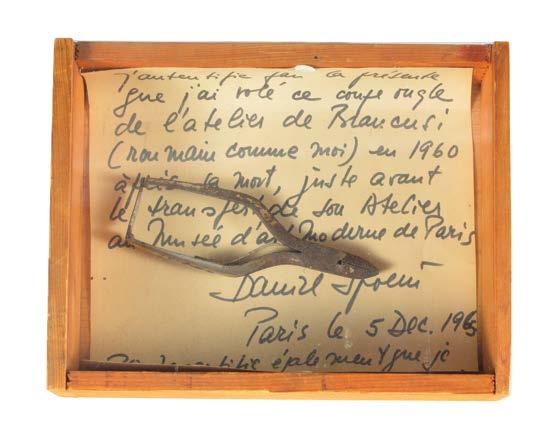 j'autentifie par la présente
que j'ai volé ce coupe ongle
de l'atelier de Brancusi
(roumain comme moi) en 1960
après sa mort, juste avant
le transfert de son Atelier
au Musée d'art Moderne de Paris
Daniel Spoerri
Paris le 5 Dec. 1965
également que je